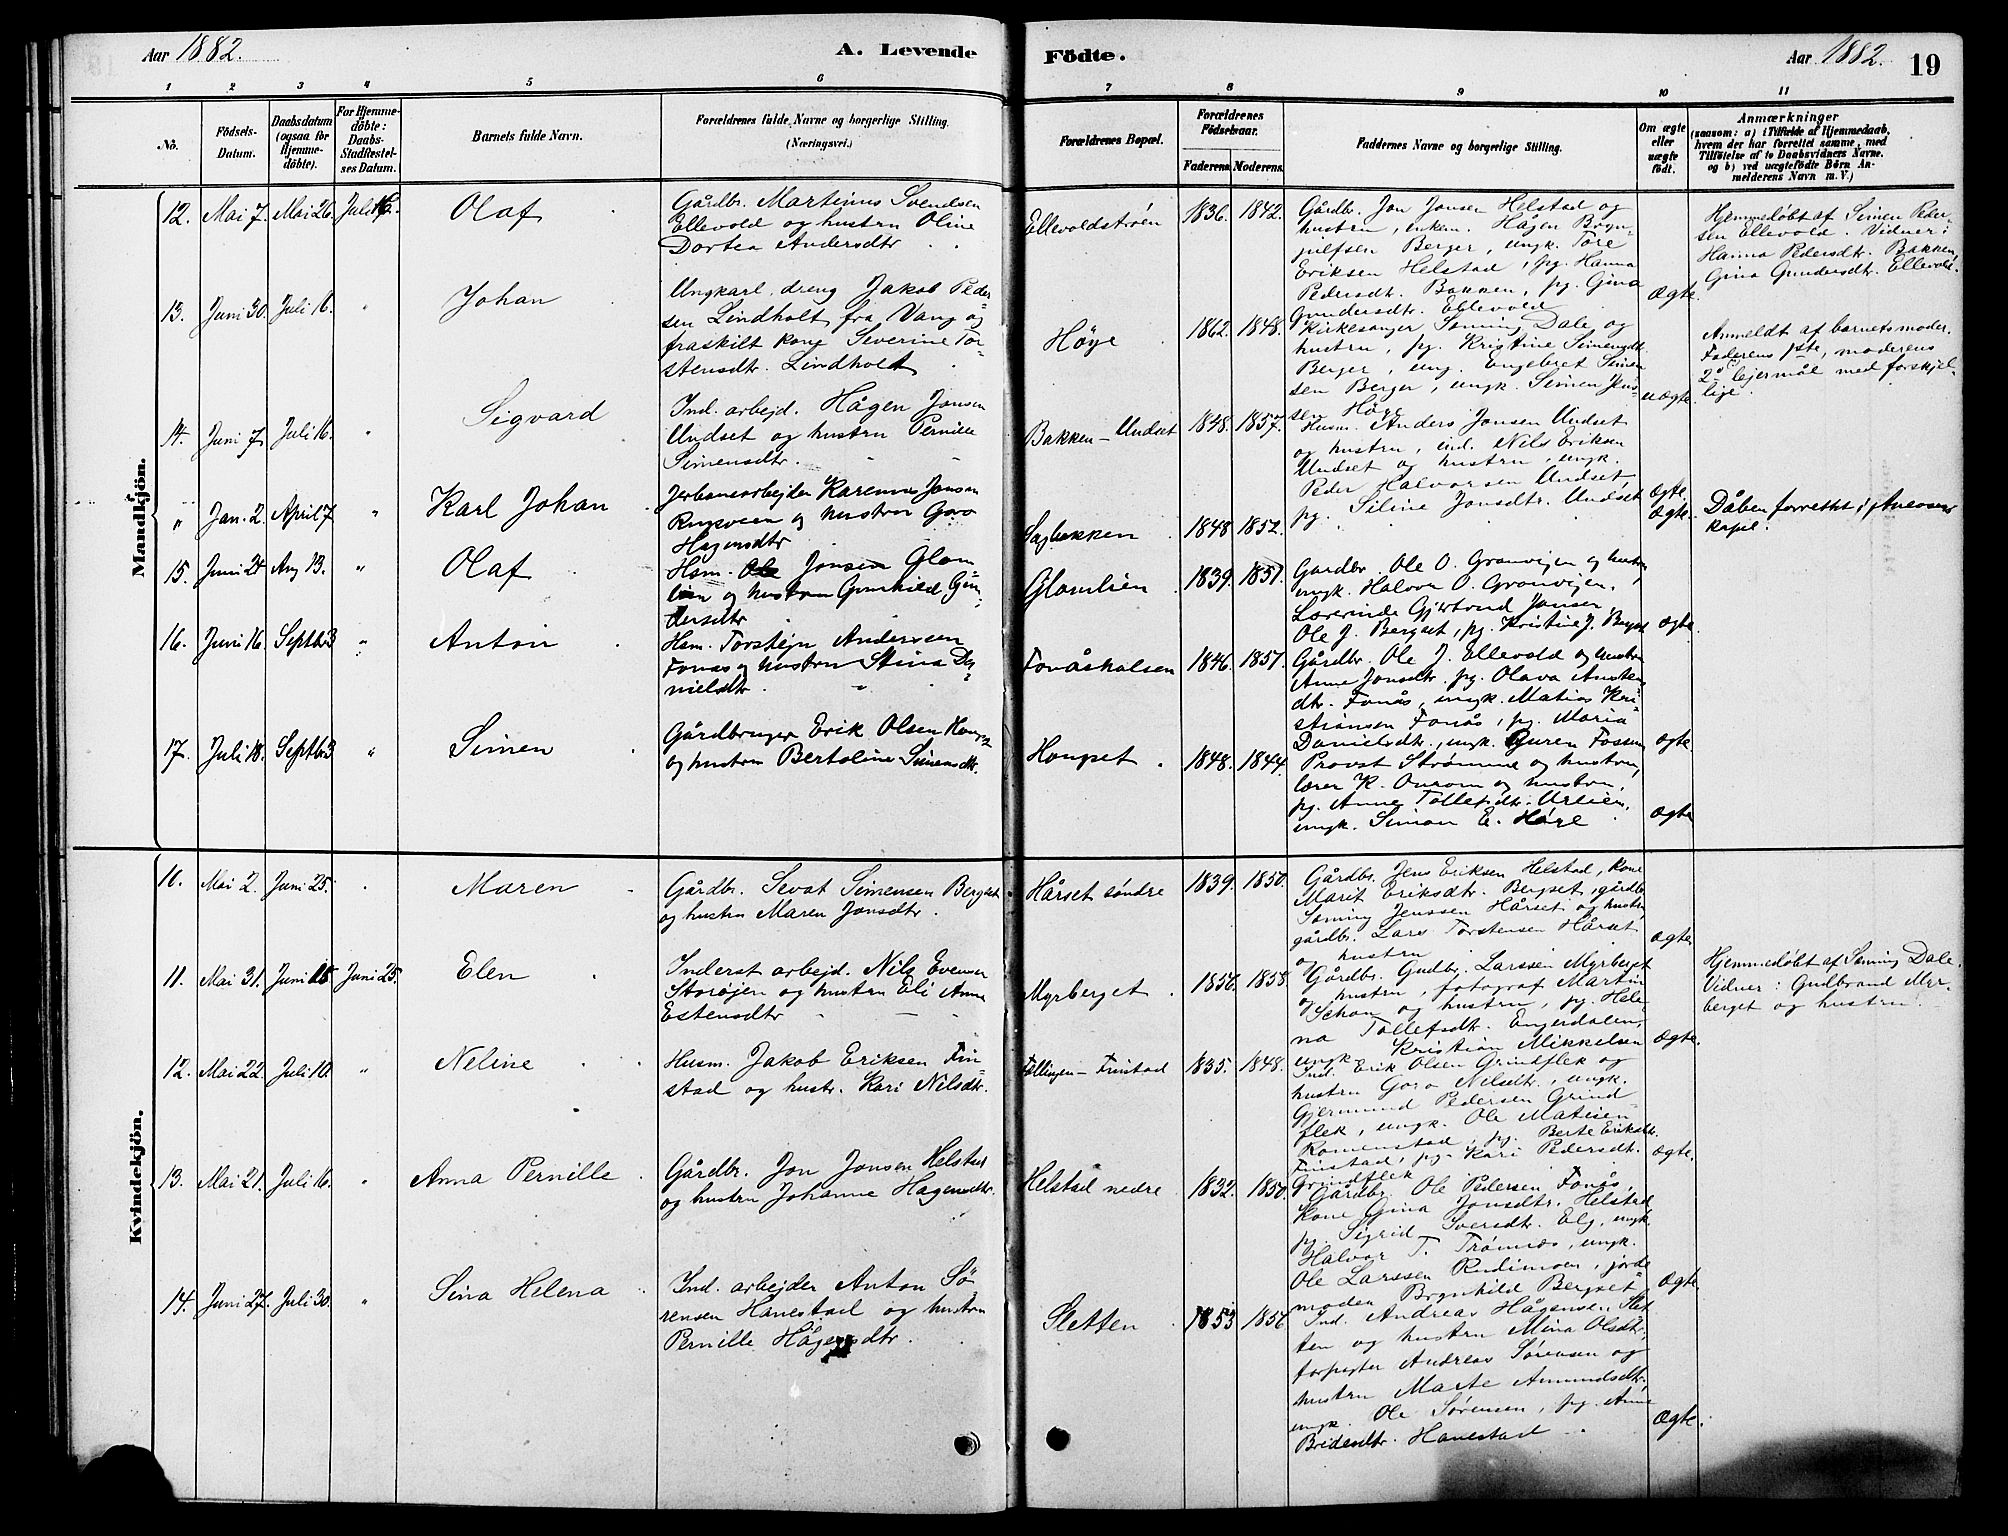 Aar 1882.
A. Levende
Födte.
Aar 1882.
19
1 2 3 4 5 6 7 8 9 10 11
No.
Födsels-
Datum.
Daabsdatum
(ogsaa for
Hjemme-
döbte).
For Hjemme-
döbte:
Daabs-
Stadfæstel-
ses Datum.
Barnets fulde Navn.
Forældrenes fulde Navne og borgerlige Stilling.
(Næringsvei.)
Forældrenes Bopæl.
Forældrenes
Födselsaar.
Faderens. Moderens.
Faddernes Navne og borgerlige Stilling.
Om ægte
eller
uægte
födt.
Anmærkninger
(saasom: a) i Tilfælde af Hjemmedaab,
hvem der har forrettet samme, med
Tilföielse af to Daabsvidners Navne,
og b) ved uægtefödte Börn An-
melderens Navn m. V.)
Mandkjön.
12. Mai 7. Mai 26. Juli 16. Olaf
Gårdbr. Martinus Svendsen
Ellevold og hustru Oline
Dortea Andersdtr.
Ellevoldstrøen 1836. 1842.
Gårdbr. Jon Jonsen Helstad og
hustru, enkem. Hågen Bryn-
julfsen Berger, ungk. Tore
Eriksen Helstad, pg. Hanna
Pedersdtr. Bakken, pg. Gina
Gundersdtr. Ellevold
Ægte.
Hjemmedøbt af Simen Peder-
sen Ellevold. Vidner:
Hanna Pedersdtr. Bakken,
Gina Gundersdtr. Ellevold.
13. Juni 30. Juli 16. " Johan
Ungkarl dreng Jakob Peder-
sen Lindholt fra Vang og
fraskilt kone Severine Tor-
stensdtr. Lindholt
Høye 1862. 1848.
Kirkesanger Sæming Dale og
hustru, pg. Kristine Simensdtr.
Berger, ung. Engebret Simen
sen Berger, ungk. Simen Jens-
sen Høye
uægte.
Anmeldt af barnets moder.
Faderens 1ste, moderens
2det lejermål med forskjel-
lige.
14. Juni 7. Juli 16. " Sigvard
Ind. arbejd. Hågen Jonsen
Undset og hustru Pernille
Simensdtr.
Bakken-Undset 1848. 1857.
Husm. Anders Jonsen Undset
og hustru, ind. Nils Eriksen
Undset og hustru, ungk.
Peder Halvorsen Undset,
pg. Siline Jonsdtr. Undset
Ægte.
" Jan. 2. April 7. " Karl Johan
Jerbanearbejder Karenus Jonsen
og hustru Goro
Hagensdtr
Sagbakken 1848 1852.
Ægte.
Dåben forrettet i
kapel.
15. Juni 24. Aug 13. " Olaf
Hsm. Ole Jonsen Glom
lien og hustru Gunhild Gun-
dersdtr
Glomlien 1839. 1851.
Gardbr. Ole O. Granvigen og hustru,
ungk. Halvor O. Granvigen,
Lærerinde Gjertrud Jansen
Ole J. Bergset, pg. Kristine J. Bergset
Ægte.
16. Juni 16. Septbr 3 " Anton
Hsm. Torstejn Andersen
Fonås og hustru Stina Da-
nielsdtr.
Fonåskalsen 1846. 1857.
Gårdbr. Ole J. Ellevold og hustru
Anne Jonsdtr. pg. Olava Amuns
dtr. Fonås, ungk. Matias Kri-
stiansen Fonås, pg. Maria
Danielsdtr., ungk. Guren Fossen
Ægte
17. Juli 18. Septbr 3 " Simen
Gårdbruger Erik Olsen Hongset
og hustru Bertoline Simensdtr.
Hongset 1848. 1844.
Provst Strømme og hustru,
lærer K. og hustru,
pg. Anne Tollefsdtr. Urlien,
ungk. Simon E. Høye
Ægte
Kvindekjön.
10. Mai 2. Juni 25. " Maren
Gårdbr. Sevat Simensen Bergset
og hustru Maren Jonsdtr.
Hårset søndre 1839. 1850.
Gårdbr. Jens Eriksen Helstad, kone
Marit Eriksdtr. Bergset, gårdbr.
Sæming Jenssen Hårset og hustru,
gårdbr. Lars Torstensen Hårset
og hustru
Ægte.
11. Mai 31. Juni 15. Juni 25. Elen
Inderst arbejd. Nils Evensen
Storøjen og hustru Eli Anna
Estensdtr
Myrberget 1856. 1858.
Gårdbr. Gudbr. Larssen Myrberget
og hustru, fotograf Martin
Schou og hustru, pg. Hele-
na Tollefsdtr. Engerdalen,
ungk. Kristian Mikkelsen
Ægte.
Hjemmedøbt af Sæming Dale.
Vidner: Gudbrand Myr-
berget og hustru.
12. Mai 22. Juli 10. " Neline
Husm. Jakob Eriksen Fin-
stad og hustr. Kari Nilsdtr.
Føllingen-Finstad 1835. 1848.
Ind. Erik Olsen Grindflek og
hustru Goro Nilsdtr., ungk.
Gjermund Pedersen Grind
flek, ungk. Ole Matisen
Romenstad, pg. Berte Eriksdtr.
Finstad, pg. Kari Pedersdtr.
Grindflek
Ægte.
13. Mai 21. Juli 16. " Anna Pernille
Gårdbr. Jon Jonsen Helstad
og hustru Johanne Hagensdtr.
Helstad nedre 1832. 1850.
Gårdbr. Ole Pedersen Fonås,
kone Gina Jonsdtr. Helstad,
pg. Sigrid Sversdtr. Elg, ungk.
Halvor T. Trømnes, ungk.
Ole Larssen Rudimoen, jorde
moder Brynhild Bergset
Ægte.
14. Juni 27. Juli 30. " Sina Helena
Ind. arbejder Anton Sö-
rensen Hanestad og hustru
Pernille Hågensdtr.
Sletten 1853 1856
Ind. Andreas Hågensen Slet
ten og hustru Mina Olsdtr,
forpagter Andreas Sørensen og
hustru Marte Amundsdtr.,
ungk. Ole Sørensen, pg. Anne
Bridesdtr. Hanestad
Ægte.